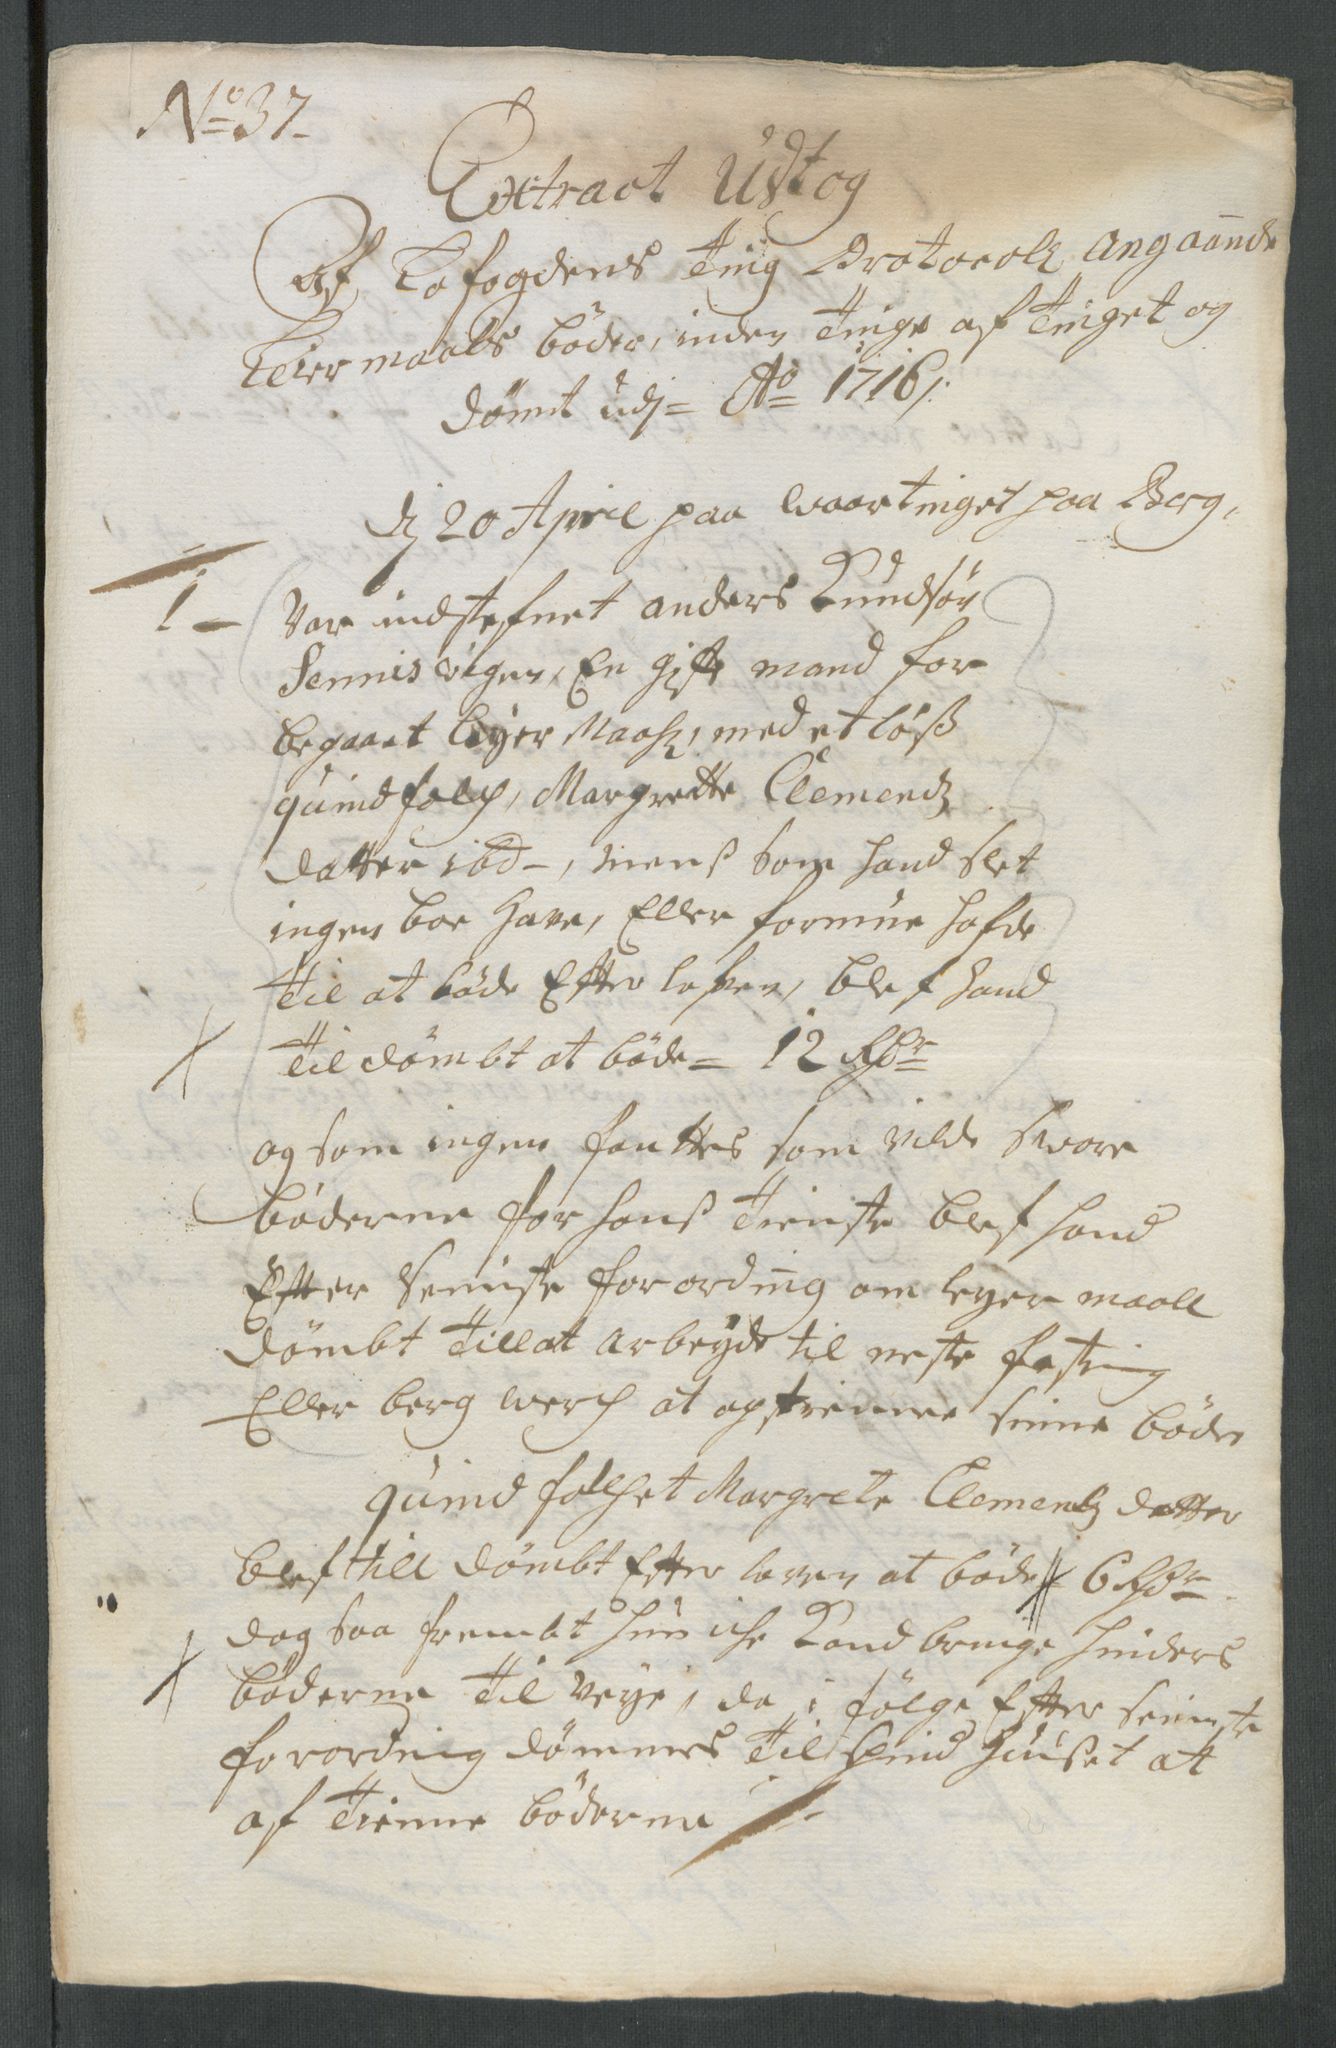 No 37
Extract Udtog
Af Fofogdens Ting Protocoll, angaaende
Leiermaals bøder, inden Tinge af Tinget og
dømt udj Ao 1716/:
dj 20 April paa Waartinget paa Berg,
1 Var indstefnet anders Knudsøn
Sennisvigen, En gift mand for
begaaet leyer Maahl, med et løß
quindfolch, Margrette Clementz
datter ibd, menß som hand slet
ingen boe Have, Eller formue hafde
Til at bøde Efter lofven, blef hand
Til dømbt at bøde 12 Rdr
og som ingen fantes som vilde Svare
bøderne for hanß Tieniste blef hand
Efter Seniste forordning om leyer maall
dømbt Till at arbeyde til neste festning
Eller berg werch at aftienne sinne bøder
quind folchet Margrete Clementz datter
blef till dømbt Efter loven at bøde 6 Rdr
dog saa frembt hun iche Kand bringe hinders
bøderne Til Veye, da i følge Efter Seniste
forordning dømmes Til Spind Huuset at
af Tienne bøderne